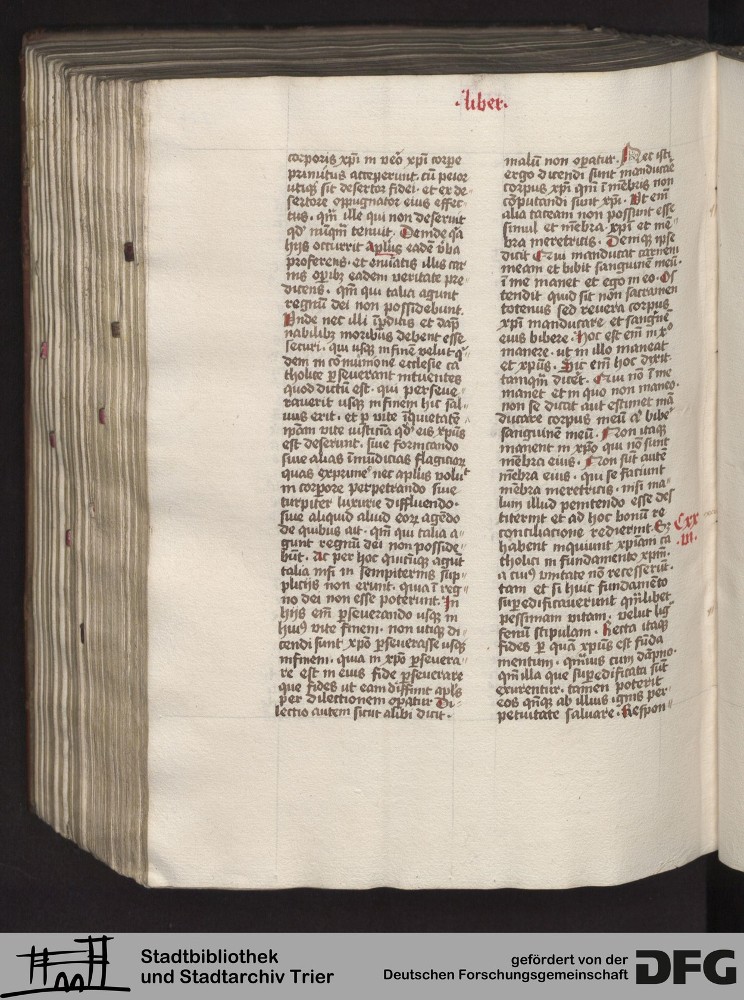 ·liber·
corporis xpi in vero xpi corpore
primitus acceperunt. cū peior
utiqꝫ sit desertor fidei. et ex de=
sertore oppugnator eius effec=
tus. qm̄ ille qui non deseruit
qd̕ nūqm̄ tenuit. Deinde qa
hijs occurrit aplus eadē v̕ba
proferens. et enūatis illis car
nis op̄ibꝫ eadem veritate pre=
dicens. qm̄ qui talia agunt
regnū dei non possidebunt.
Unde nec illi ī p̄ditis et dāp̄
nabilibꝫ moribus debent esse
securi. qui usqꝫ in finē velut qͥ=
dem in cōmunione ecclesie ca
tholice ꝑseuerant intuentes
quod dictū est. qui perseue=
rauerit usqꝫ in finem hic sal=
uus erit. et ꝑ vite īiquietatē
ip̄am vite iusticiā qd̕ eis xp̄us
est deserunt. siue fornicando
siue alias īmūdicias flagiciorꝫ
quas exprime̕ nec aplus voluͭ
in corpore perpetrando siue
turpiter luxurie diffluendo.
siue aliquid aliud eorꝫ agēdo
de quibus ait. qm̄ qui talia a=
gunt regnū dei non posside=
būt. Ac per hoc quicūqꝫ agūt
talia nisi in sempiternis sup=
plicijs non erunt. quia ī reg=
no dei non esse poterunt. In
hijs em̄ ꝑseuerando usqꝫ in
huiꝰ vite finem. non utiqꝫ di=
cendi sunt xp̄o ꝑseuerasse usqꝫ
in finem. quia in xp̄o ꝑseuera=
re est in eius fide ꝑseuerare
que fides ut eam diffinit apl̄s
per dilectionem op̄atur Di=
lectio autem sicut alibi dicit.
malū non op̄atur. Nec isti
ergo dicendi sunt manducare
corpus xp̄i qm̄ ī mēbris non
cōputandi sunt xp̄i. Ut em̄
alia taceam non possunt esse
simul et mēbra xp̄i et me=
bra meretricis. Deniqꝫ ipse
dicit Qui manducat carnem
meam et bibit sanguinē meū.
ī me manet et ego in eo. Os
tendit quid sit non sacramen
totenus sed reuera corpus
xp̄i manducare et sanguinē
eius bibere. Hoc est em̄ in xͦ
manere. ut in illo maneat
et xp̄us. Sic em̄ hoc dixit
tamqm̄ dicēt. Qui nō ī me
manet et in quo non maneo.
non se dicat aut estimet mā
ducare corpus meū aͭ bibe̕
sanguinē meū. Non itaqꝫ
manent in xp̄o qui nō sunt
mēbra eius. Non sūt autē
mēbra eius. qui se faciunt
mēbra meretricis. nisi ma=
lum illud penitendo esse des
titerint et ad hoc bonū re
conciliacione redierint. Sꝫ
habent inquiunt xp̄iani ca
tholici in fundamento xp̄m.
a cuiꝰ unitate nō recesserūt.
tam et si huic fundamēto
suꝑedificauerunt qm̄libet
pessimam vitam. velut lig=
fenū stipulam. Recta itaqꝫ
fides ꝑ quā xp̄us est fūda
mentum. qm̄uis cum dāp̄no.
qm̄ illa que suꝑedificata sūt
exurentur. tamen poterit
eos qn̄qꝫ ab illius ignis per=
petuitate saluare. Respon=
Cxx
vi.
Stadtbibliothek
und Stadtarchiv Trier
gefördert von der
Deutschen Forschungsgemeinschaft
DFG